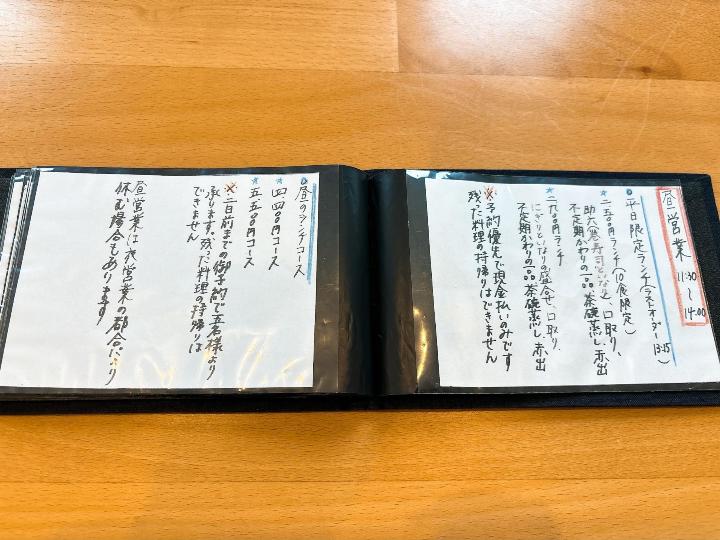 昼営業 11:30〜14:00
○平日限定ランチ(ラストオーダー13:15)
★二、五〇〇円ランチ(10食限定)
助六(巻寿司といなり)、口取り、
不定期かわりの一品、茶碗蒸し、赤出
★二、九〇〇円ランチ
にぎりといなりの盛合せ、口取り、
不定期かわりの一品、茶碗蒸し、赤出
※予約優先で現金払いのみです
残った料理の持帰りはできません
○昼のランチコース
★四、四〇〇円コース
★五、五〇〇円コース
※二日前までの御予約で五名様より
承ります。残った料理の持帰りは
できません
昼営業は夜営業の都合により
休む場合もあります